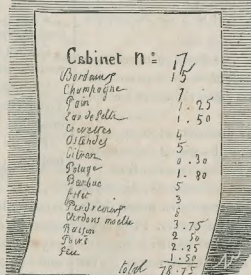 Cabinet n= 17
Bordeaux 15
Champagne 7
Pain 1.25
Eau de Seltz 1.50
Crevettes 4
Ostendes 5
Citron 0.30
Potage 1.80
Barbue 5
Filet 3
Perdreaux 6
moelle 3.75
2 50
2.25
Feu 1.50
total 78.75